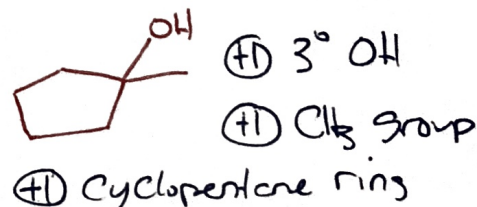 OH
+1 3° OH
+1 CH3 group
+1 Cyclopentane ring